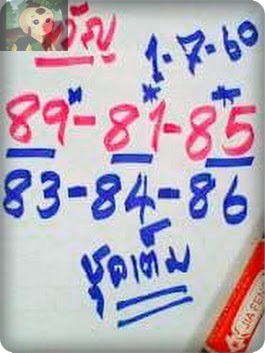 1-7-60
89-81-85
83-84-86
ชุดเต็ม
JIA FEN